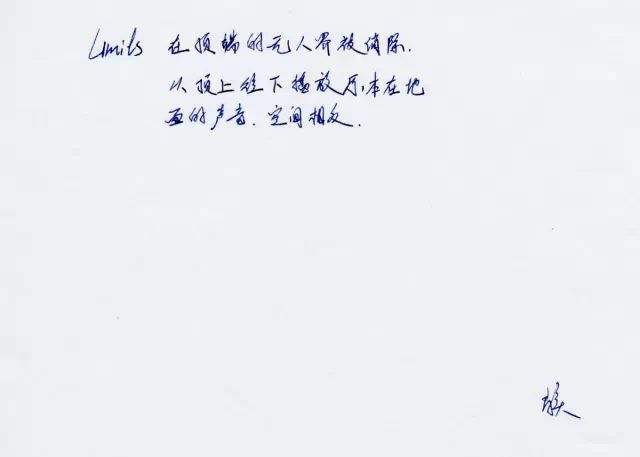 Limits 在顶端的无人界被消除.
从顶上往下播放原本在地
面的声音.空间相反.